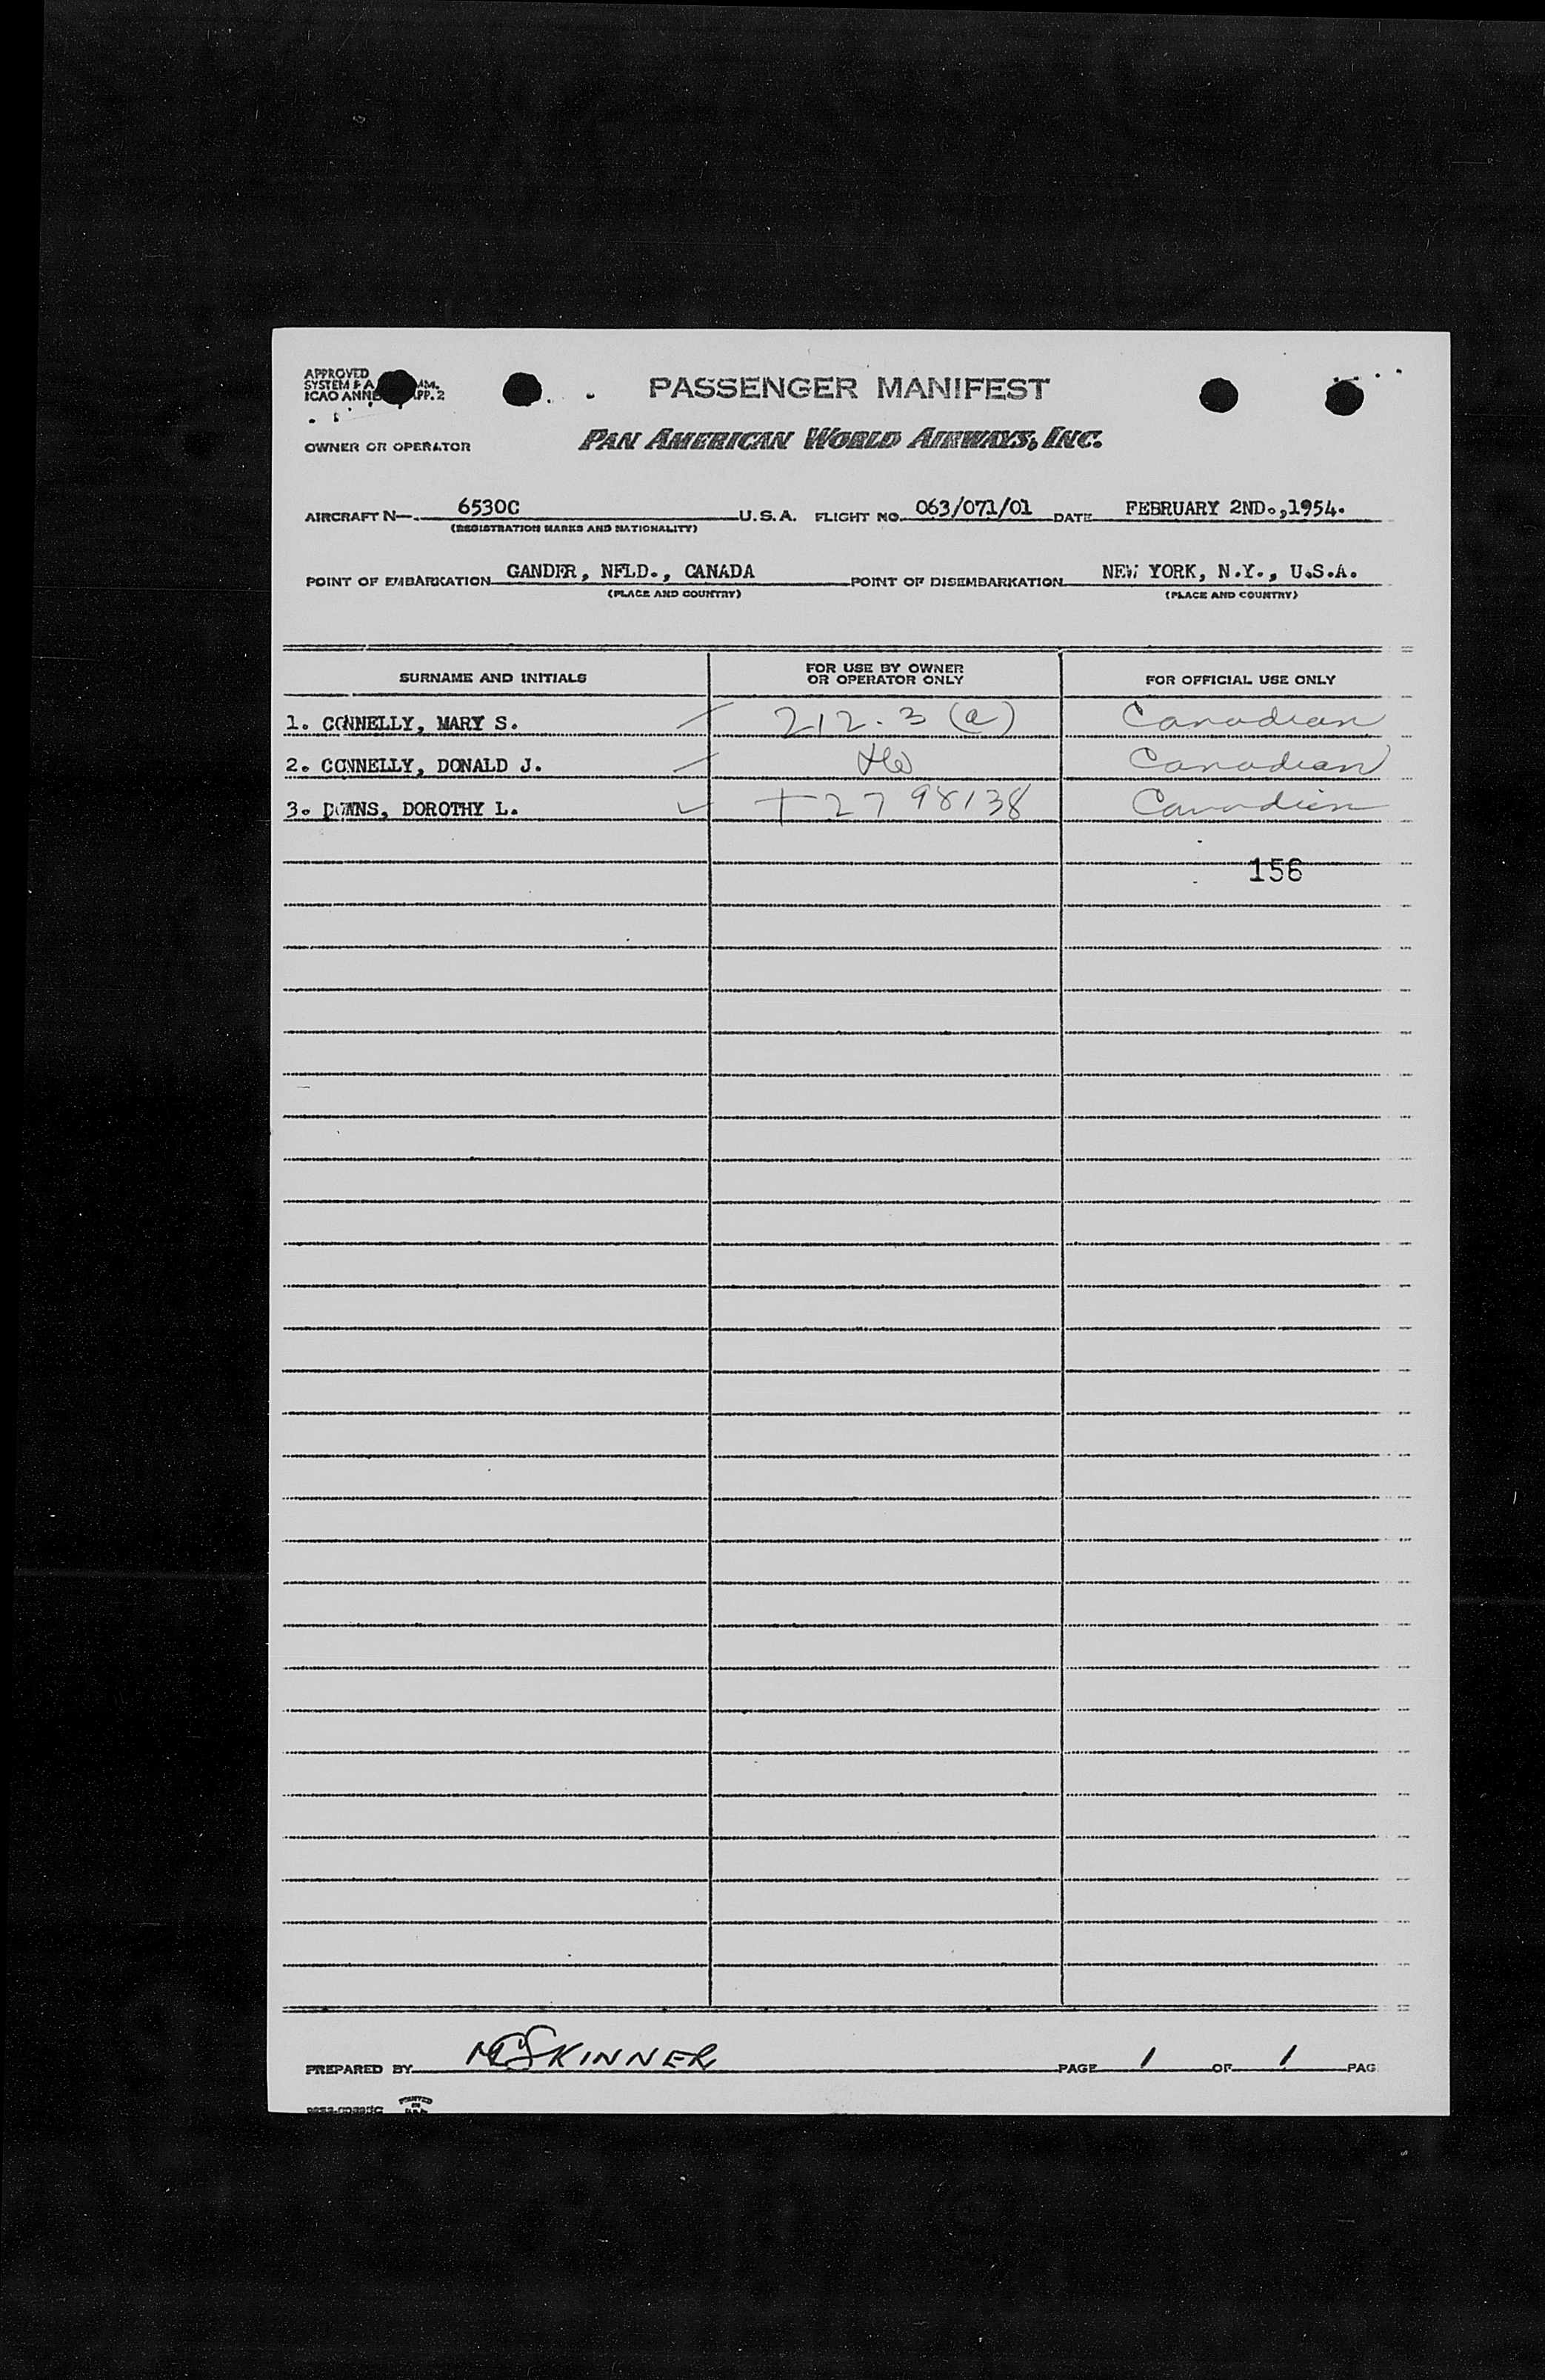 PASSENGER MANIFEST
APPROVED
SYSTEM F A MM.
ICAO ANNE PP. 2
OWNER OR OPERATOR PAN AMERICAN WORLD AIRWAYS, INC.
AIRCRAFT N—. 6530C U.S.A. FLIGHT NO. 063/071/01 DATE FEBRUARY 2ND.,1954.
(REGISTRATION MARKS AND NATIONALITY)
POINT OF EMBARKATION GANDER, NFLD., CANADA POINT OF DISEMBARKATION NEW YORK, N.Y., U.S.A.
(PLACE AND COUNTRY) (PLACE AND COUNTRY)
SURNAME AND INITIALS FOR USE BY OWNER OR OPERATOR ONLY FOR OFFICIAL USE ONLY
1. CONNELLY, MARY S. 212.3 (a) Canadian
2. CONNELLY, DONALD J. Canadian
3. DOWNS, DOROTHY L. T2798138 Canadian
156
PREPARED BY MCSKINNER PAGE 1 OF 1 PAG
PRINTED
IN
U.S.A.